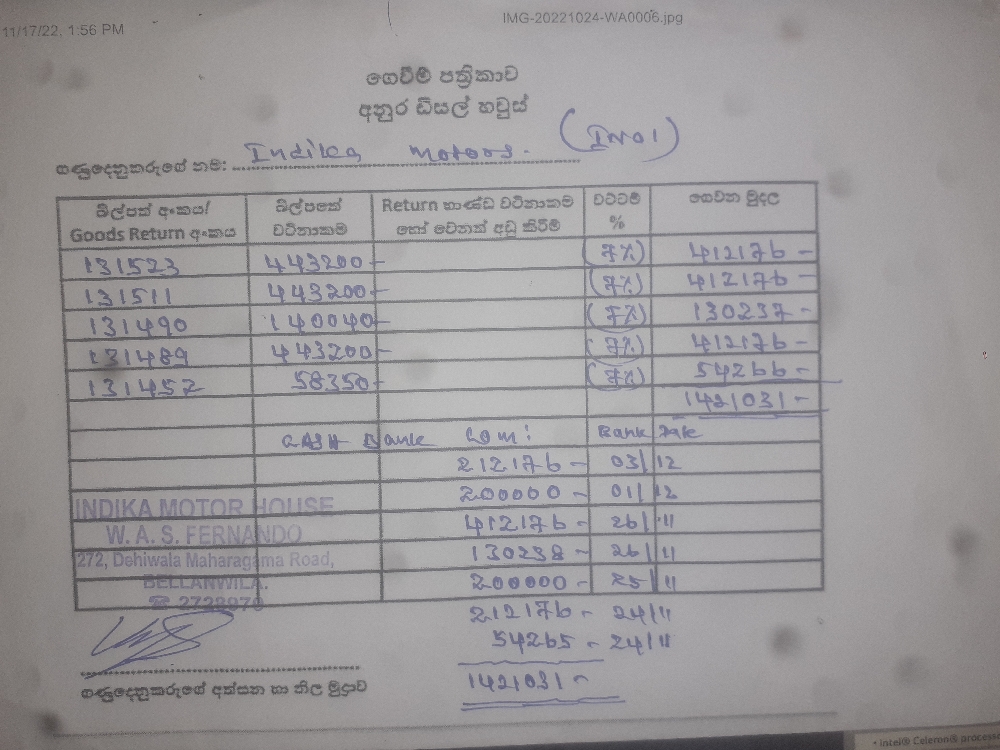 11/17/22, 1:56 PM
IMG-20221024-WA0006.jpg
ගෙවීම් පත්‍රිකාව
අනුර ඩීසල් හවුස්
ගණුදෙනුකරුගේ නම: Indika Motors. (IM01)
බිල්පත් අංකය/ Goods Return අංකය බිල්පතේ වටිනාකම Return භාණ්ඩ වටිනාකම හෝ වෙනත් අඩු කිරීම් වට්ටම් % ගෙවන මුදල
131523 443200- (7%) 412176 -
131511 443200- (7%) 412176
131490 140040- (7%) 130237 -
131489 443200- (7%) 412176 -
131457 58350- (7%) 54266 -
1421031 -
CASH Bank Com: Bank Date
212176 - 03/12
200000 - 01/12
INDIKA MOTOR HOUSE
412176 - 26/11
W. A. S. FERNANDO
130238 - 26/11
272, Dehiwala Maharagama Road,
BELLANWILA.
200000 - 25/11
☎ 2728970
212176 - 24/11
54265 - 24/11
1421031 -
ගණුදෙනුකරුගේ අත්සන හා නිල මුද්‍රාව
Intel® Celeron®